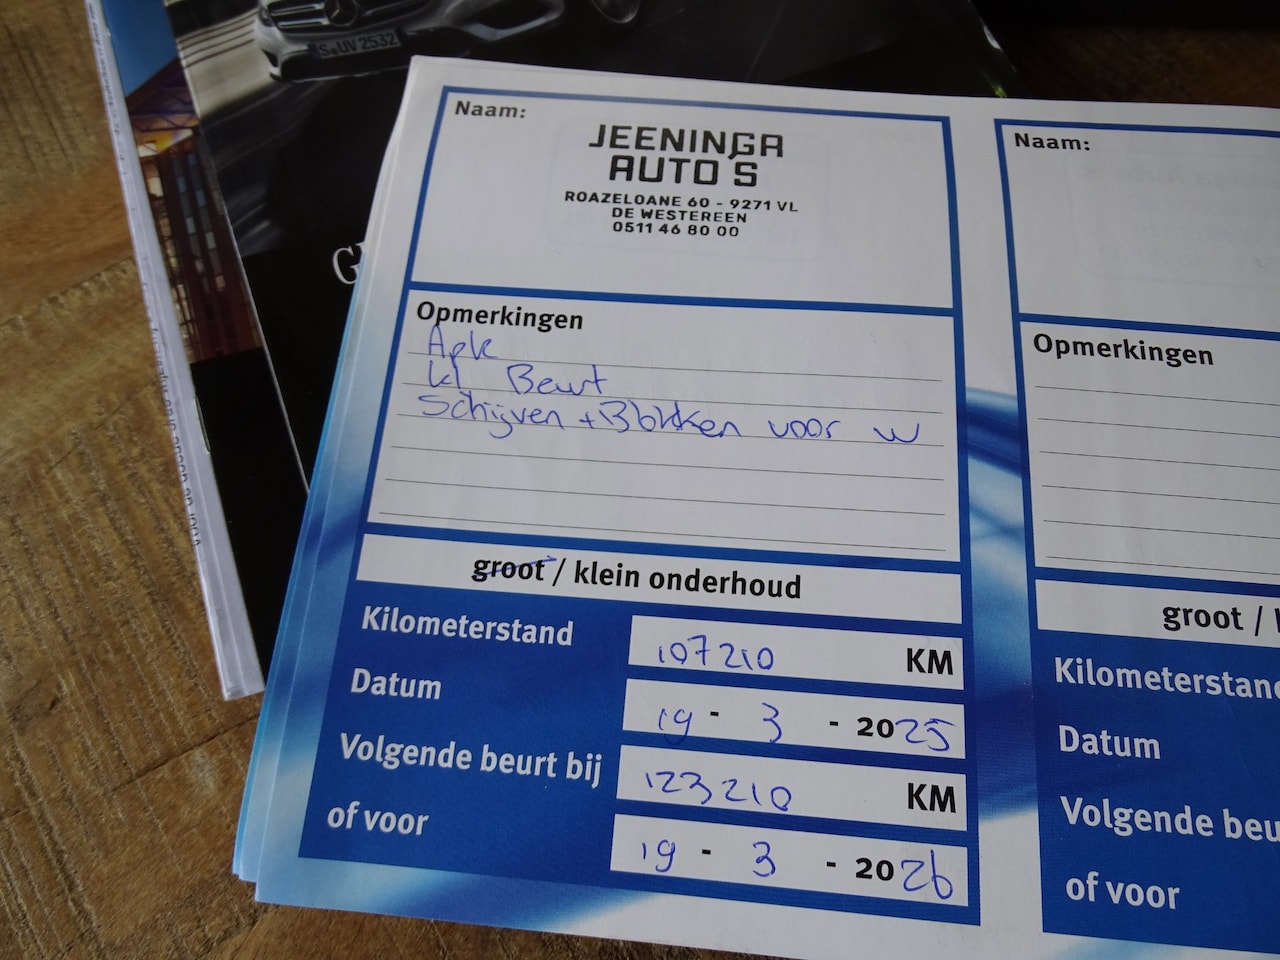 S·UV 2532
Naam:
JEENINGA
AUTO'S
ROAZELOANE 60 - 9271 VL
DE WESTEREEN
0511 46 80 00
Opmerkingen
Apk
kl Beurt
Schijven + Blokken voor W
groot / klein onderhoud
Kilometerstand 107210 KM
Datum 19 - 3 - 2025
Volgende beurt bij 123210 KM
of voor 19 - 3 - 2026
Naam:
Opmerkingen
groot /
Kilometerstand
Datum
Volgende beu
of voor